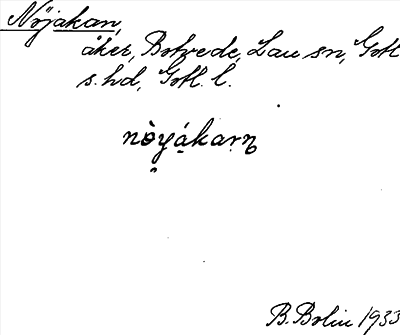 Nöjakan,
åker, Botvede, Lau sn, Gotl
s. hd, Gotl. l.
B. Bolin 1933